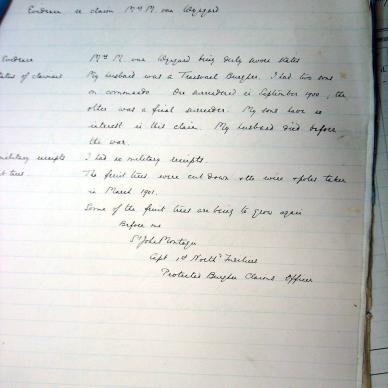 Evidence re claim Mrs M. van Wyngard
Evidence Mrs M. van Wyngard being duly sworn states
status of claimant My husband was a Transvaal Burgher. I had two sons
on commando. One surrendered in September 1900, the
other was a final surrender. My sons have no
interest in this claim. My husband died before
the war.
military receipts I had no military receipts.
t trees. The fruit trees were cut down & the wire & poles taken
in March 1901.
Some of the fruit trees are being to grow again
Before me
St John Montagu
Capt 1st North'd Fusiliers
Protected Burgher Claims Officer